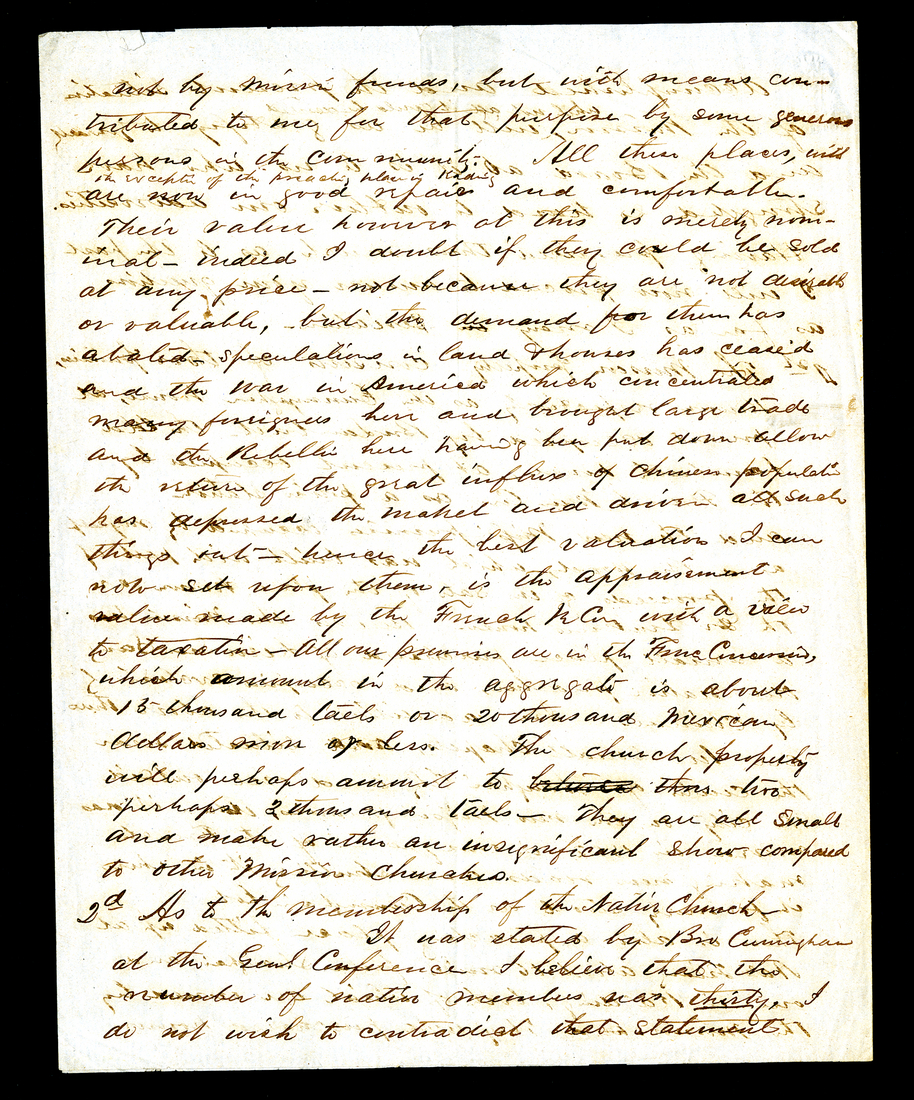 not by mission funds, but with means con-
tributed to me, for that purpose by some generous
persons in the community. All these places, with
the exception of the preaching place in Nanking
are now in good repair and comfortable.
Their value however at this is merely nom-
inal - indeed I doubt if they could be sold
at any price - not because they are not desirable
or valuable, but the demand for them has
abated - speculations in land & houses has ceased
and the war in America which concentrated
many foreigners here and brought large trade
and the Rebellion here having been put down allow
the return of the great influx of Chinese population
has depressed the market and driven all such
things out - hence the best valuation I can
now set upon them, is the appraisement
value made by the French with a view
to taxation - All our premises are in the Concession,
which amount in the aggregate is about
15 thousand taels or 20 thousand Mexican
dollars more or less. The church property
will perhaps amount to two
perhaps 3 thousand taels - They are all small
and make rather an insignificant show compared
to other Mission Churches.
2d As to the membership of the Native Church -
It was stated by Bro Cunningham
at the Genl. Conference I believe that the
number of native members was thirty. I
do not wish to contradict that statement